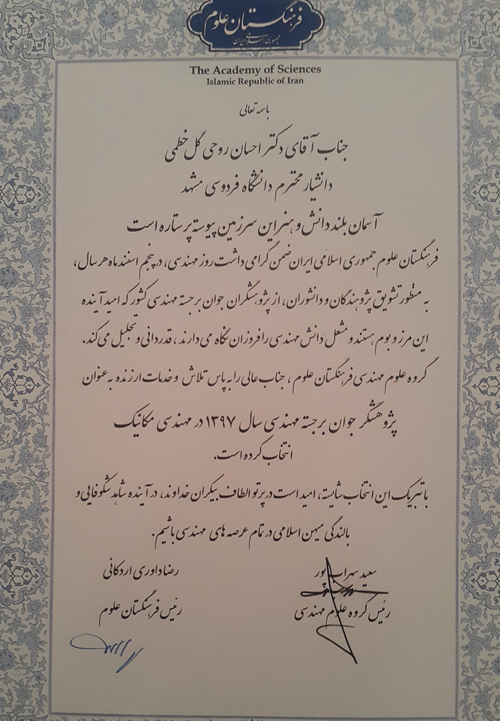 فرهنگستان علوم
جمهوری اسلامی ایران
The Academy of Sciences
Islamic Republic of Iran
باسمه تعالی
جناب آقای دکتر احسان روحی گل خطمی
دانشیار محترم دانشگاه فردوسی مشهد
آسمان بلند دانش و هنر این سرزمین پیوسته پرستاره است
فرهنگستان علوم جمهوری اسلامی ایران ضمن گرامی داشت روز مهندسی، در پنجم اسفند ماه هر سال،
به منظور تشویق پژوهندگان و دانشوران، از پژوهشگران جوان برجسته مهندسی کشور که امید آینده
این مرز و بوم هستند و مشعل دانش مهندسی را فروزان نگاه می دارند، قدردانی و تجلیل می کند.
گروه علوم مهندسی فرهنگستان علوم، جناب عالی را به پاس تلاش و خدمات ارزنده به عنوان
پژوهشگر جوان برجسته مهندسی سال ۱۳۹۷ در مهندسی مکانیک
انتخاب کرده است.
با تبریک این انتخاب شایسته، امید است در پرتو الطاف بیکران خداوند، در آینده شاهد شکوفایی و
بالندگی میهن اسلامی در تمام عرصه های مهندسی باشیم.
سعید سهراب پور
رئیس گروه علوم مهندسی
رضا داوری اردکانی
رئیس فرهنگستان علوم